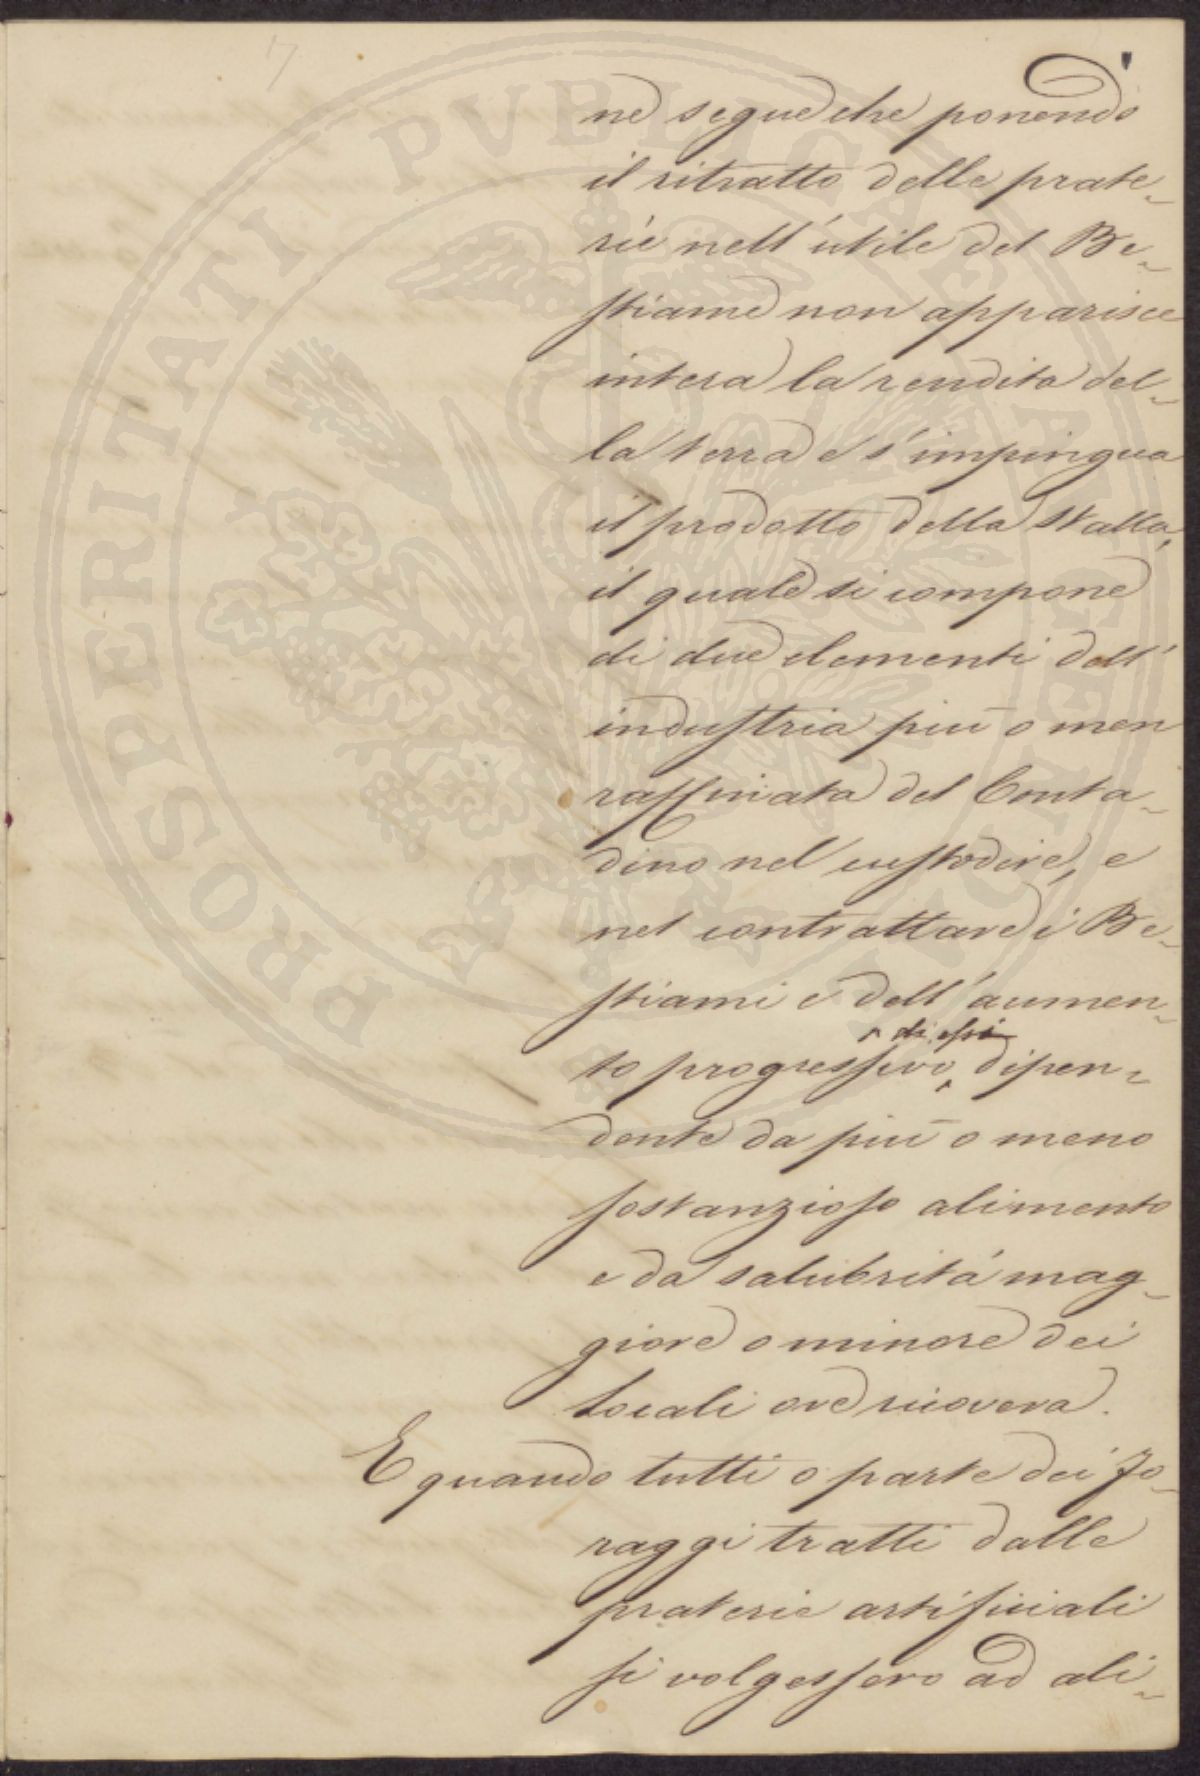 ne segue che ponendo
il ritratto delle prate-
rie nell'utile del Be-
stiame non apparisce
intera la rendita del-
la terra e s'impingua
il prodotto della stalla,
il quale si compone
di due elementi dell'
industria più o men
raffinata del Conta-
dino nel custodire, e
nel contrattare i Be-
stiami e dell'aumen-
di essi
to progressivo, dipen-
dente da più o meno
sostanzioso alimento
e da salubrità mag-
giore o minore dei
locali ove ricovera.
E quando tutti o parte dei fo-
raggi tratti dalle
praterie artificiali
si volgessero ad ali-
PROSPERITATI PVBLICAE AVGENDAE